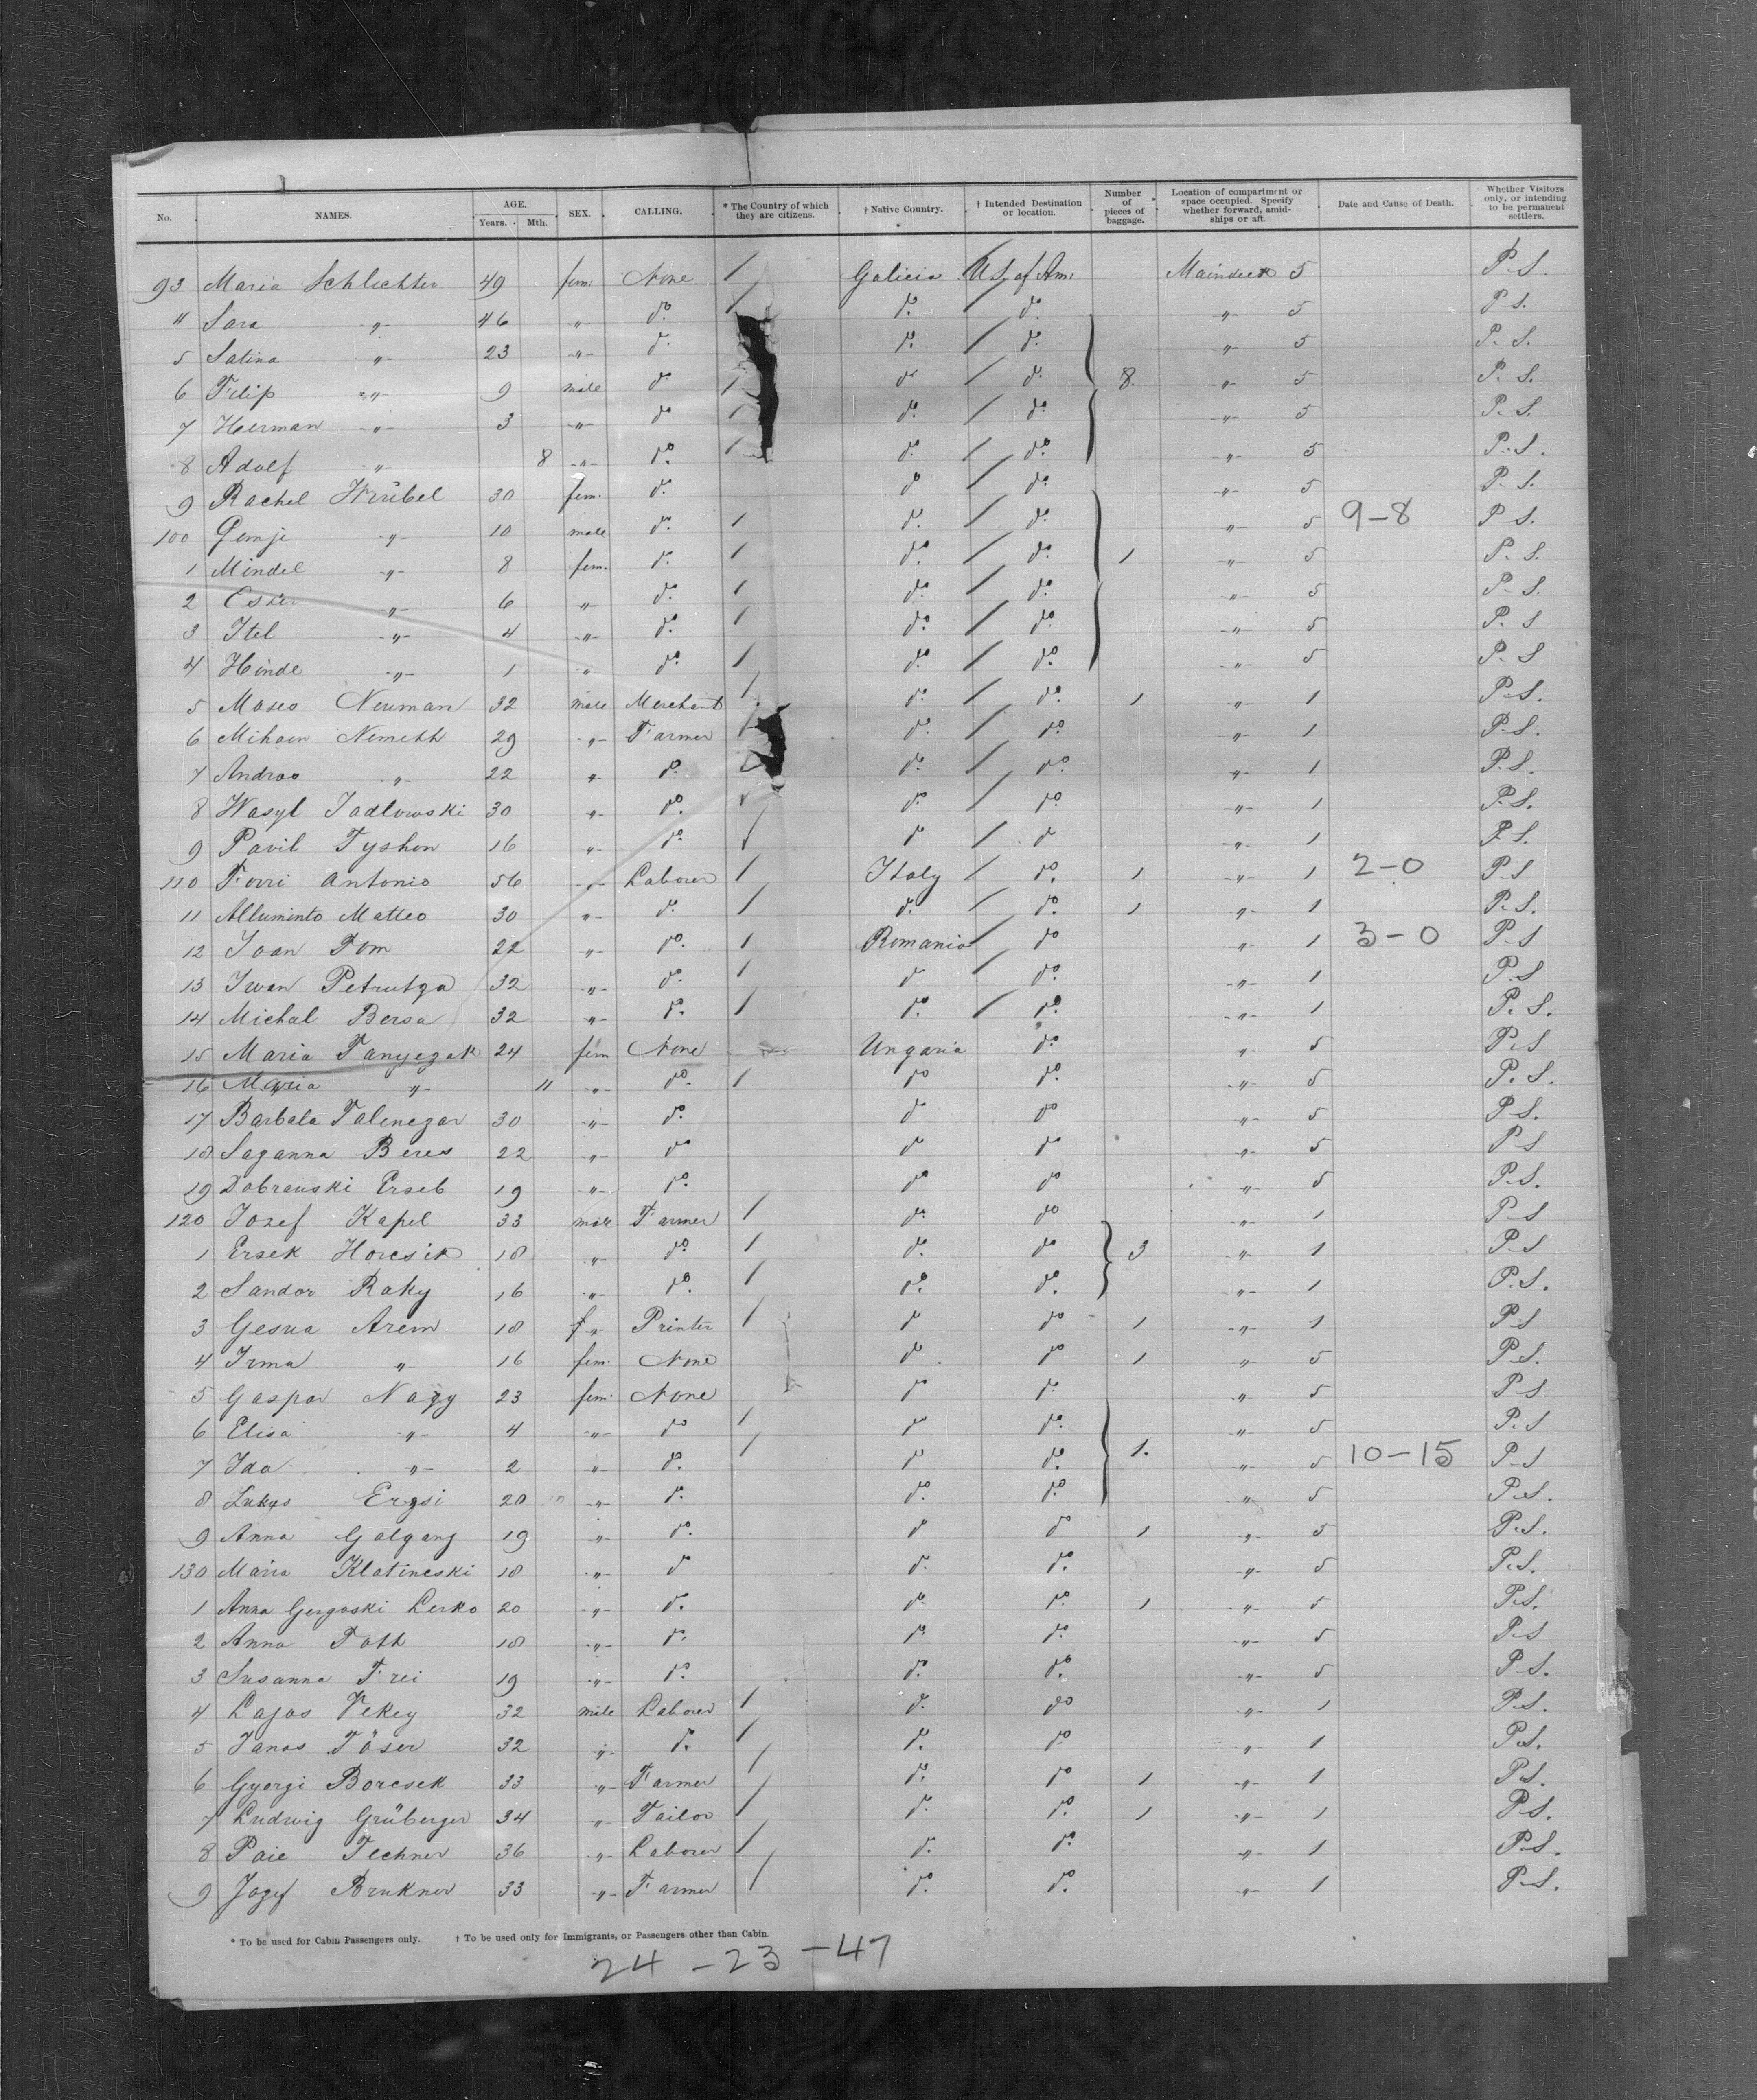 No. NAMES. AGE. Years. Mth. SEX. CALLING. * The Country of which they are citizens. † Native Country. † Intended Destination or location. Number of pieces of baggage. Location of compartment or space occupied. Specify whether forward, amidships or aft. Date and Cause of Death. Whether Visitors only, or intending to be permanent settlers.
93 Maria Schlechter 49 fem: None / Galicia U.S. of Am: Maindeck 5 P.S.
" Sara -"- 46 -"- do. / do. / do. -"- 5 P S.
5 Salina -"- 23 -"- do. do. / do. -"- 5 P. S.
6 Filip -"- 9 male do / do / do. 8. -"- 5 P. S.
7 Herman -"- 3 -"- do / do. / do. -"- 5 P. S.
8 Adolf -"- 8 -"- do. / do. / do. -"- 5 P.S.
9 Rachel Wrübel 30 fem. do. do / do. -"- 5 P. S.
100 -"- 10 male do. / do. / do. -"- 5 9-8 P S.
1 Mindel -"- 8 fem. do. / do. / do. 1 -"- 5 P. S.
2 Ester -"- 6 -"- do. / do. / do. -"- 5 P. S.
3 Itel -"- 4 -"- do. / do. / do. -"- 5 P. S
4 Hinde -"- 1 -"- do. / do. / do. -"- 5 P. S
5 Moses Neuman 32 male Merchant / do. / do. 1 -"- 1 P.S.
6 Nemeth 29 -"- Farmer / do. / do. -"- 1 P.S.
7 Andras -"- 22 -"- do. do. / do. -"- 1 P.S.
8 Wasyl Jadlowski 30 -"- do. / do. / do. -"- 1 P.S.
9 Pavil Tyshon 16 -"- do. / do / do -"- 1 P.S.
110 Antonio 56 -"- Laborer / Italy / do. 1 -"- 1 2-0 P.S
11 Alluminto Matteo 30 -"- do. / do. / do. 1 -"- 1 P.S.
12 Ioan Tom 22 -"- do. / Romania / do -"- 1 3-0 P.S
13 Iwan Petrutza 32 -"- do. / do / do. -"- 1 P.S
14 Michal Bersa 32 -"- do. / do. / do. -"- 1 P.S.
15 Maria Tanyezak 24 fem None Ungaria do. " 5 P.S
16 Maria -"- 11 -"- do. / do do. -"- 5 P.S.
17 Barbala Talenezar 30 -"- do. do do -"- 5 P.S.
18 Saganna Beres 22 -"- do do do -"- 5 P.S
19 Dobranski Erseb 19 -"- do. do do -"- 5 P.S.
120 Jozef Kapel 33 male Farmer / do. do -"- 1 P.S
1 Ersek Horcsik 18 -"- do. / do. do 3 -"- 1 P.S
2 Sandor Raky 16 -"- do. / do. do. -"- 1 P.S.
3 Gesua Arem 18 f " Printer / do do 1 -"- 1 P.S
4 Irma -"- 16 fem. None do. do 1 -"- 5 P.S.
5 Gaspar Nagy 23 fem. None do do. -"- 5 P.S
6 Elisa -"- 4 -"- do / do do. -"- 5 P.S
7 Ida -"- 2 -"- do. / do do. 1. -"- 5 10-15 P.S
8 Ergsi 20 -"- do. do. do. -"- 5 P.S.
9 Anna Galgang 19 -"- do. do do 1 -"- 5 P.S.
130 Maria Klatineski 18 -"- do do. do. -"- 5 P.S.
1 Anna Gergoski Lerko 20 -"- do. do. do. 1 -"- 5 P.S.
2 Anna Toth 18 -"- do. do. do. -"- 5 P.S
3 Susanna Frei 19 -"- do. do. do. -"- 5 P.S.
4 Lajos Vekey 32 male Laborer / do. do -"- 1 P.S.
5 Janos Töser 32 -"- do. / do. do -"- 1 P.S.
6 Gyorgi Borcsek 33 -"- Farmer / do. do 1 -"- 1 P.S.
7 Ludwig Grüberger 34 -"- Tailor / do. do. 1 -"- 1 P.S.
8 Paie Techner 36 -"- Laborer / do. do. -"- 1 P.S.
9 Jozef Brukner 33 -"- Farmer / do. do. -"- 1 P.S.
* To be used for Cabin Passengers only. † To be used only for Immigrants, or Passengers other than Cabin.
24 - 23 - 47